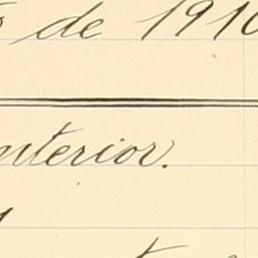 de 1910
anterior.